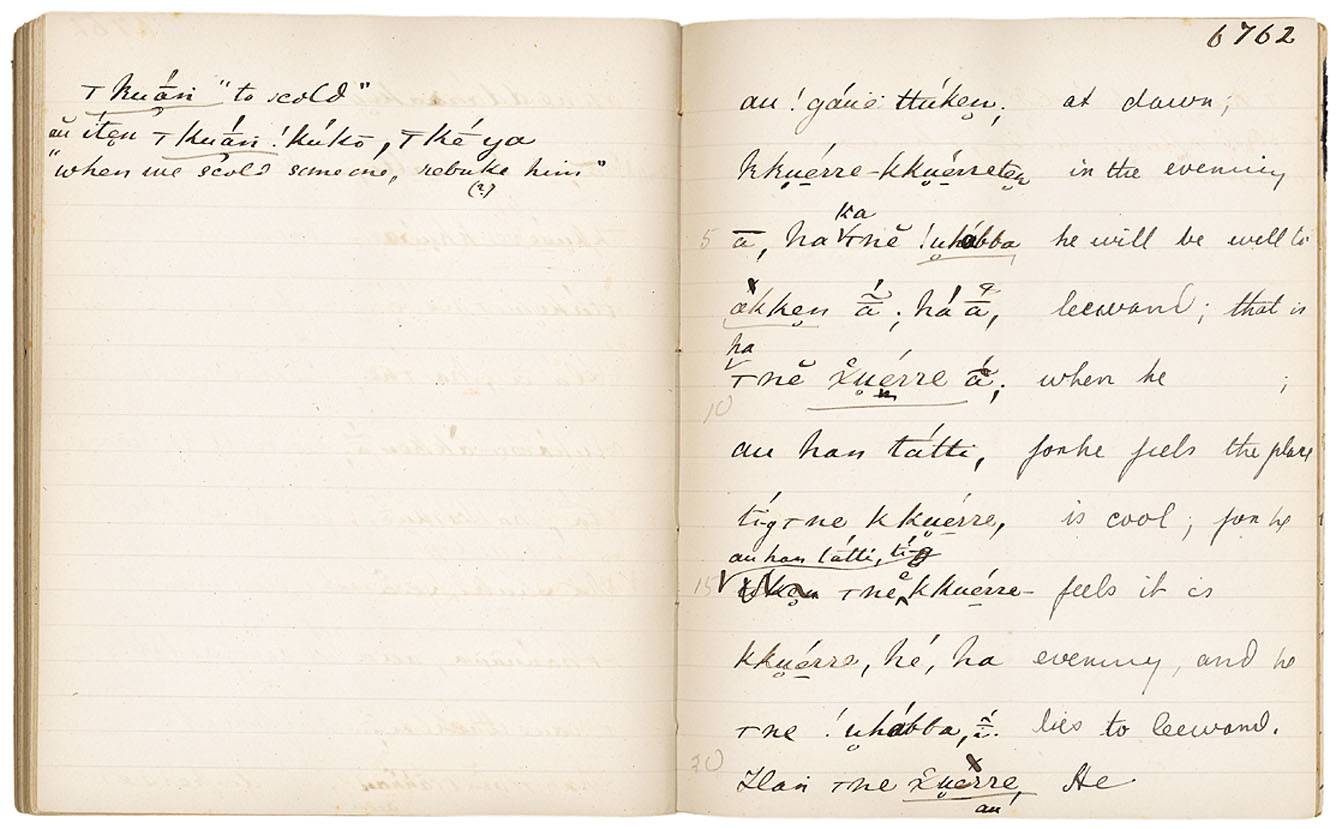 ⊤ kuấn̄ "to scold"
aū íten ⊤ kuấn̄ ! kúkō, ⊤ ké ya
"when we scold someone, rebuke him"
(?)
6762
au ! gáuë ttúken; at dawn;
kkuérre-kkuérreten in the evening
ka
5 ā, ha ⊤ nĕ ! uhábba he will be well to
x
ákken ā́; há ā, leeward; that is
ha
⊤ nĕ uérre ā́; when he ;
10
au han tátti, for he feels the place
tíg ⊤ ne kkuérre, is cool; for he
au han tátti, tíg
15 ⊤ ne kkuérre- feels it is
kkuérre, hé, ha evening, and he
⊤ ne ! uhábba, ī́. lies to leeward.
20
Han ⊤ ne uérre, He
au